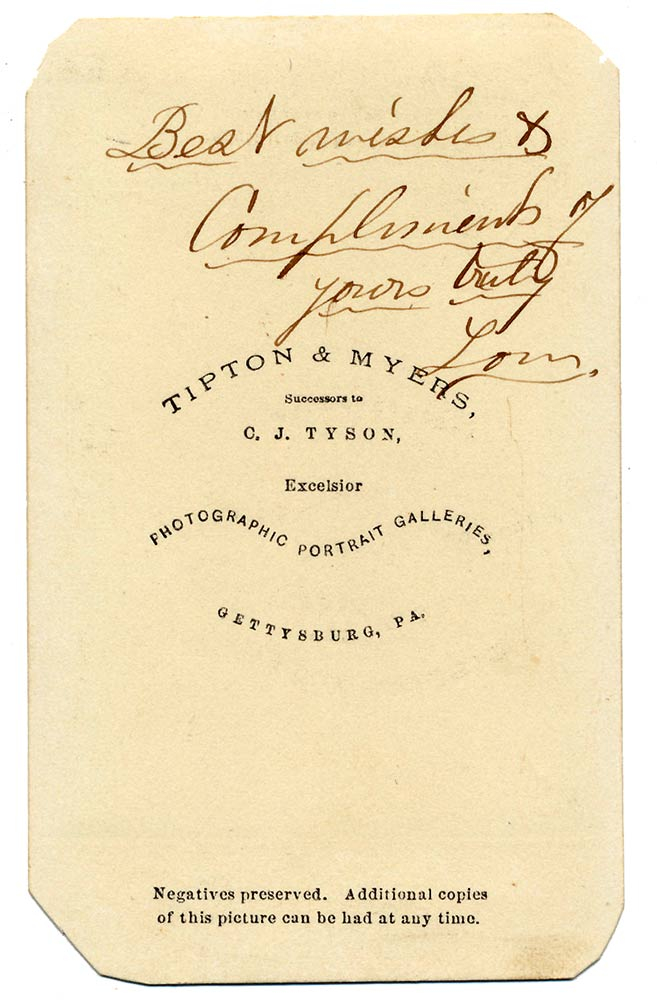 Best wishes &
Compliments of
yours truly
Tom.
TIPTON & MYERS,
Successors to
C. J. TYSON,
Excelsior
PHOTOGRAPHIC PORTRAIT GALLERIES,
GETTYSBURG, PA.
Negatives preserved. Additional copies
of this picture can be had at any time.